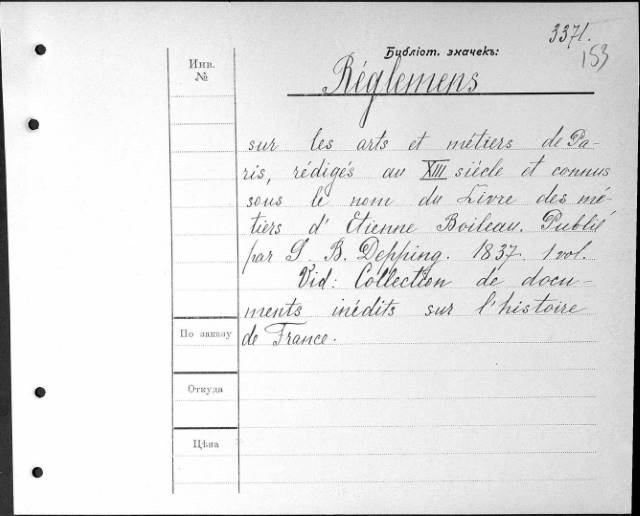 3371.
153
Библіот. значекъ:
Инв.
№
Réglemens
sur les arts et métiers de Pa-
ris, rédigés au XIII siécle et connus
sous le nom du Livre des mé-
tiers d'Etienne Boileau. Publié
par G. B. Depping. 1837. 1 vol.
Vid: Collection de docu-
ments inédits sur l'histoire
de France.
По заказу
Откуда
Цѣна